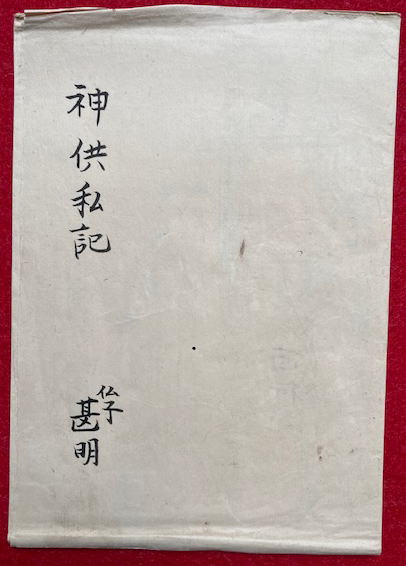 神供私記
仏子
甚明